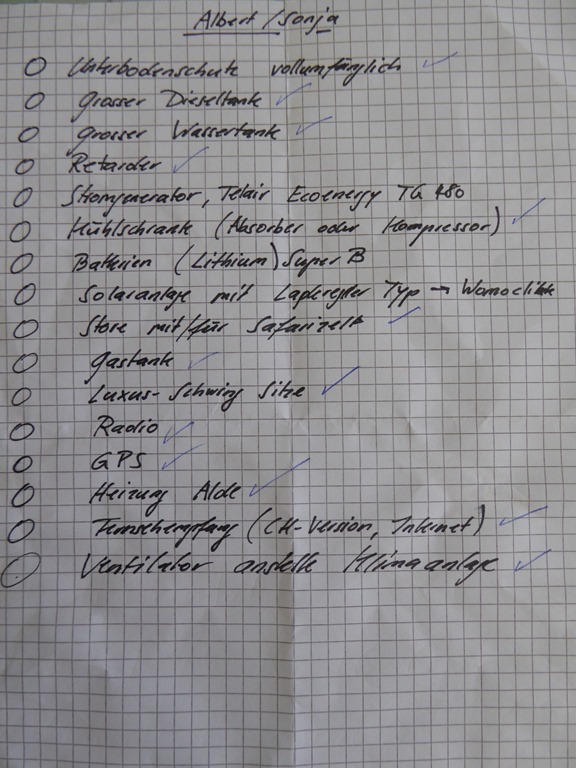 Albert / Sonja
Unterbodenschutz vollumfänglich
Grosser Dieseltank
Grosser Wassertank
Retarder
Stromgenerator, Telair Ecoenergy TG 480
Kühlschrank (Absorber oder Kompressor)
Batterien (Lithium) Super B
Solaranlage mit Laderegler Typ → Womoclick
Store mit/für Safarizelt
Gastank
Luxus-Schwing Sitze
Radio
GPS
Heizung Alde
Fernsehempfang (CH-Version, Internet)
Ventilator anstelle Klimaanlage